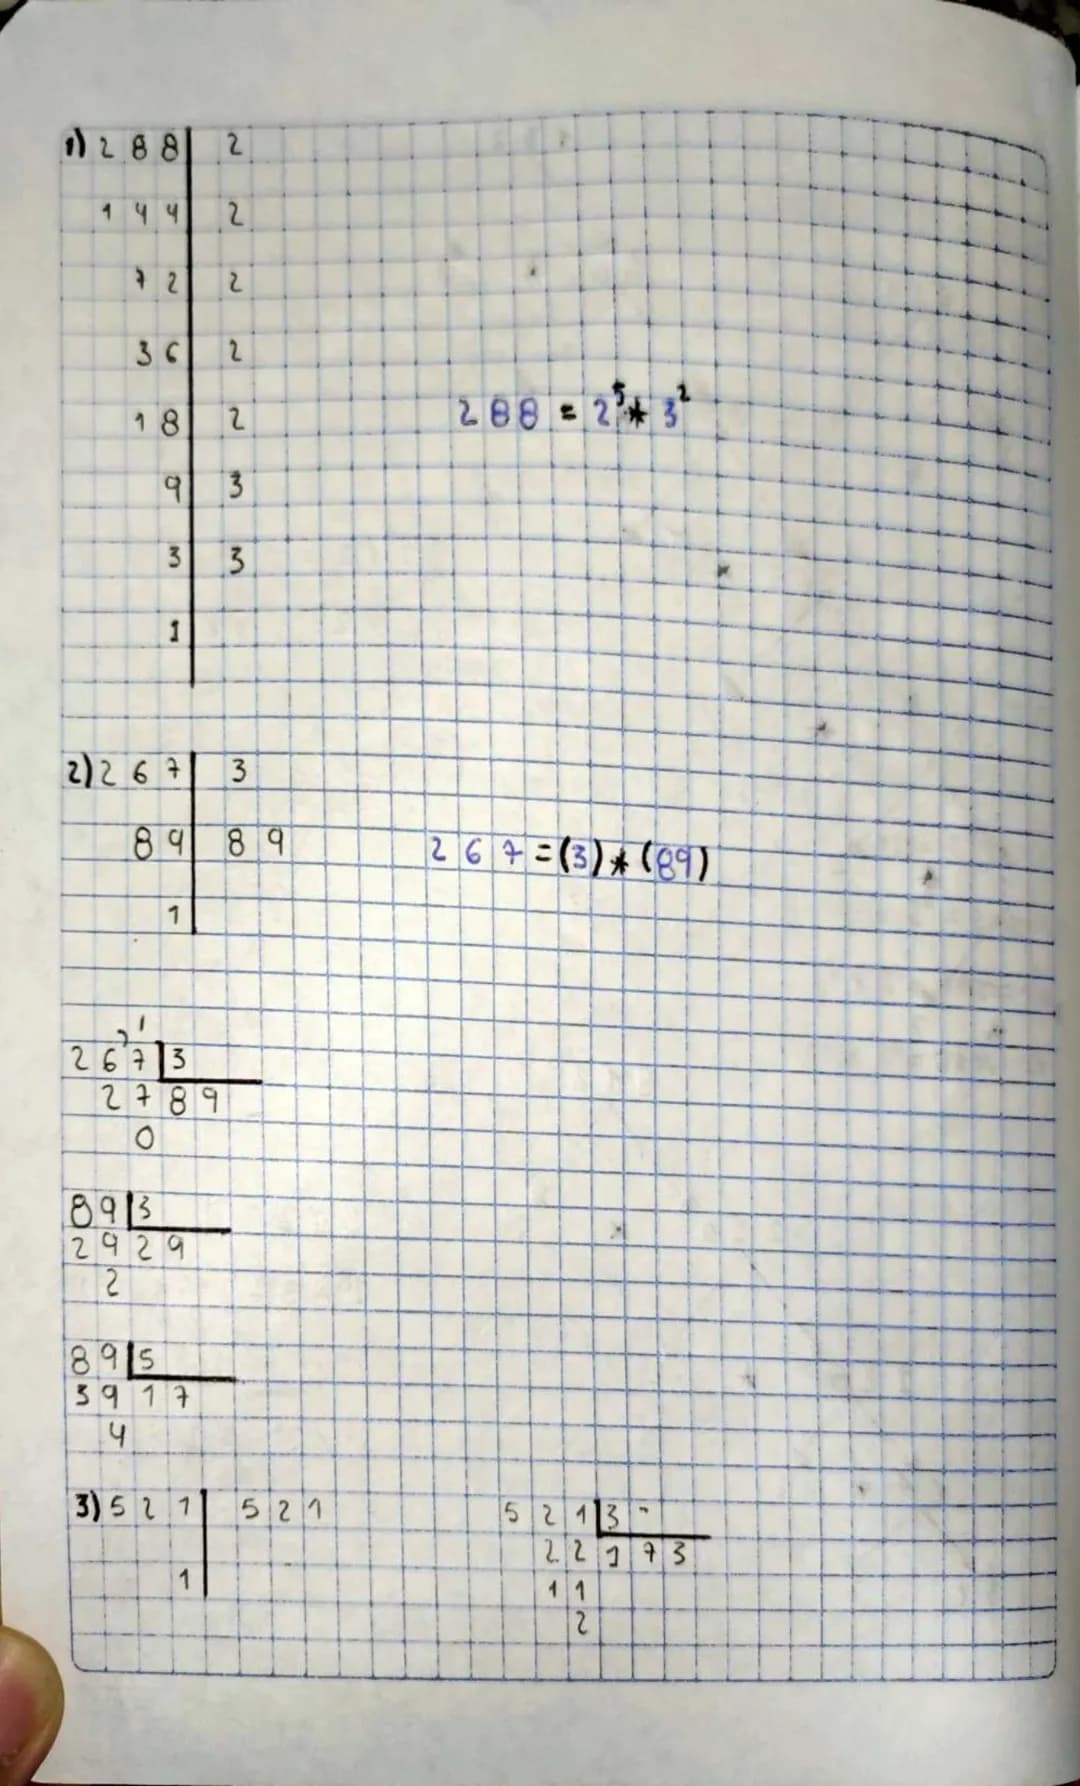 1) 2 8 8 | 2
1 4 4 | 2
7 2 | 2
3 6 | 2
1 8 | 2
288 = 2⁵ * 3²
9 | 3
3 | 3
1
2) 2 6 7 | 3
8 9 | 8 9
267 = (3) * (89)
1
2 1
2 6 7 | 3
2 7 8 9
0
8 9 | 3
2 9 2 9
2
8 9 | 5
3 9 1 7
4
3) 5 2 1 | 5 2 1
1
5 2 1 | 3
2 2 1 7 3
1 1
2